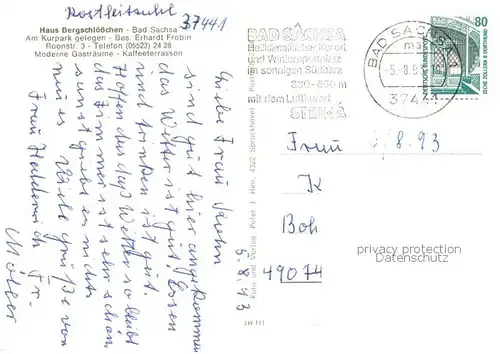 Postleitzahl
37441
Haus Bergschlößchen - Bad Sachsa
Am Kurpark gelegen - Bes. Erhardt Frobin
Roonstr. 3 - Telefon (05523) 24 28
Moderne Gasträume - Kaffeeterrassen
BAD SACHSA
Heilklimatischer Kurort
und Wintersportplatz
im sonnigen Südharz
mit dem Luftkurort
STEINA
BAD SACHSA
-5.-8.9
37441
80
DEUTSCHE BUNDESPOST
ZECHE ZOLLERN II DORTMUND
Liebe Frau
sind gut hier angekommen
das Wetter ist gut. Essen
und trinken ist gut.
Hoffen das das Wetter so bleibt
das Zimmer ist sehr schön
sonst giebt es nichts
neues Liebe Grüße von
Frau
Fr.
Möller
5/8.93
Foto und Verlag Peter J. Hen, 4322 Sprockhövel
Frau
5/8.93
K
Boh
49074
privacy protection
Datenschutz